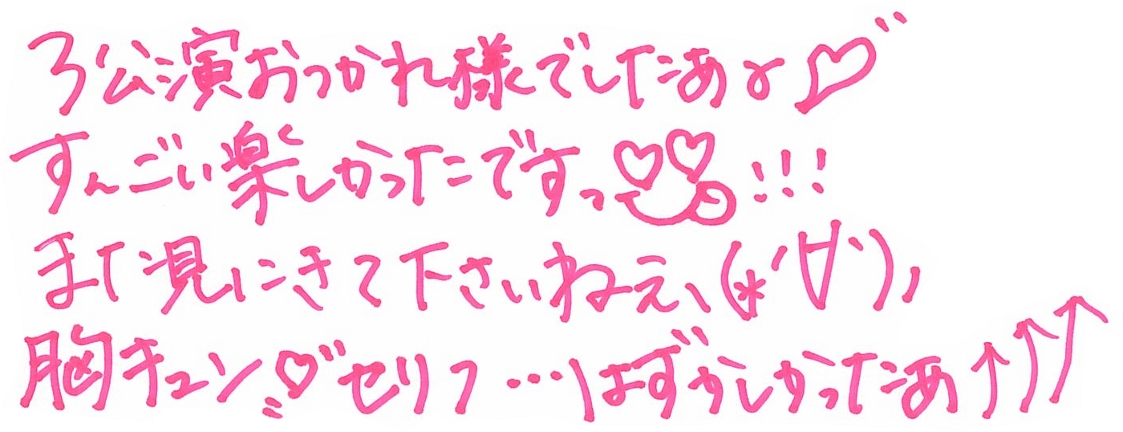 3公演おつかれ様でしたぁ♡
すんごい楽しかったですっ!!!
また見にきて下さいねえ、(*'∀')、
胸キュン♡セリフ…はずかしかったぁ↑↑↑